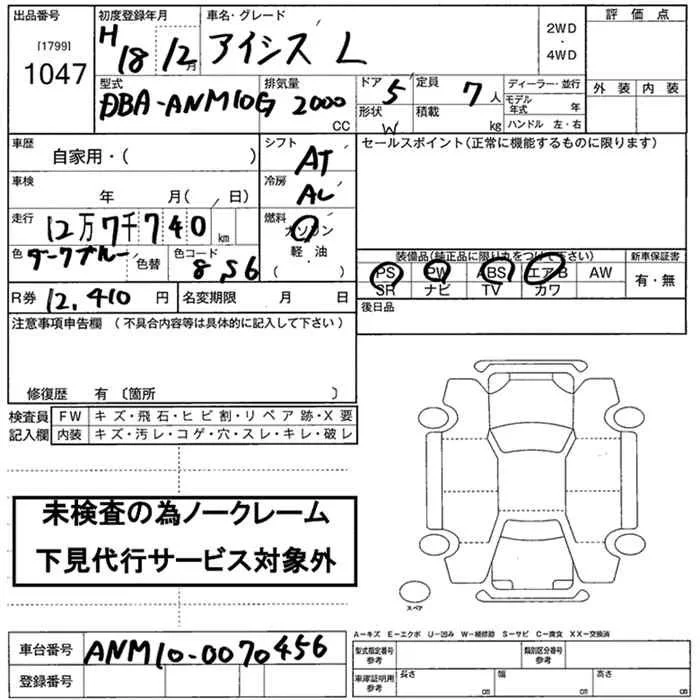 出品番号 初度登録年月 車名・グレード 評価点
[1799] 1047 H 18 12月 アイシス L 2WD・4WD
型式 排気量 ドア 5 定員 7人 ディーラー・並行 外装 内装
DBA-ANM10G 2000 CC 形状 W 積載 kg モデル年式 年
ハンドル 左・右
車歴 自家用・( ) シフト AT セールスポイント(正常に機能するものに限ります)
車検 年 月( 日) 冷房 AC
走行 12万7千740 km 燃料 ガソリン
軽・油
( )
色 ダークブルー 色替 色コード 8S6 装備品(純正品に限り丸をつけて下さい) 新車保証書
PS PW ABS エアB AW 有・無
SR ナビ TV カワ
R券 12,410 円 名変期限 月 日 後日品
注意事項申告欄 (不具合内容等は具体的に記入して下さい)
修復歴 有 〔箇所 〕
検査員 FW キズ・飛石・ヒビ割・リペア跡・X要
記入欄 内装 キズ・汚レ・コゲ・穴・スレ・キレ・破レ
未検査の為ノークレーム
下見代行サービス対象外
スペア
A-キズ E-エクボ U-凹み W-補修跡 S-サビ C-腐食 XX-交換済
車台番号 ANM10-0070456 型式指定番号 参考 類別区分番号 参考
登録番号 車庫証明用 参考 長さ cm 幅 cm 高さ cm